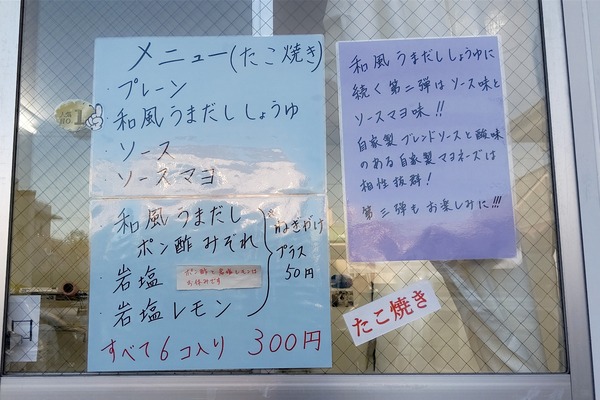 メニュー(たこ焼き)
・プレーン
人気No.1
・和風うまだししょうゆ
・ソース
・ソースマヨ
・和風うまだし
ポン酢みぞれ
・岩塩
・岩塩レモン
※ねぎがけ
プラス
50円
お休みです
すべて6コ入り 300円
和風うまだししょうゆに
続く第二弾はソース味と
ソースマヨ味!!
自家製ブレンドソースと酸味
のある自家製マヨネーズは
相性抜群!
第三弾もお楽しみに!!!
たこ焼き